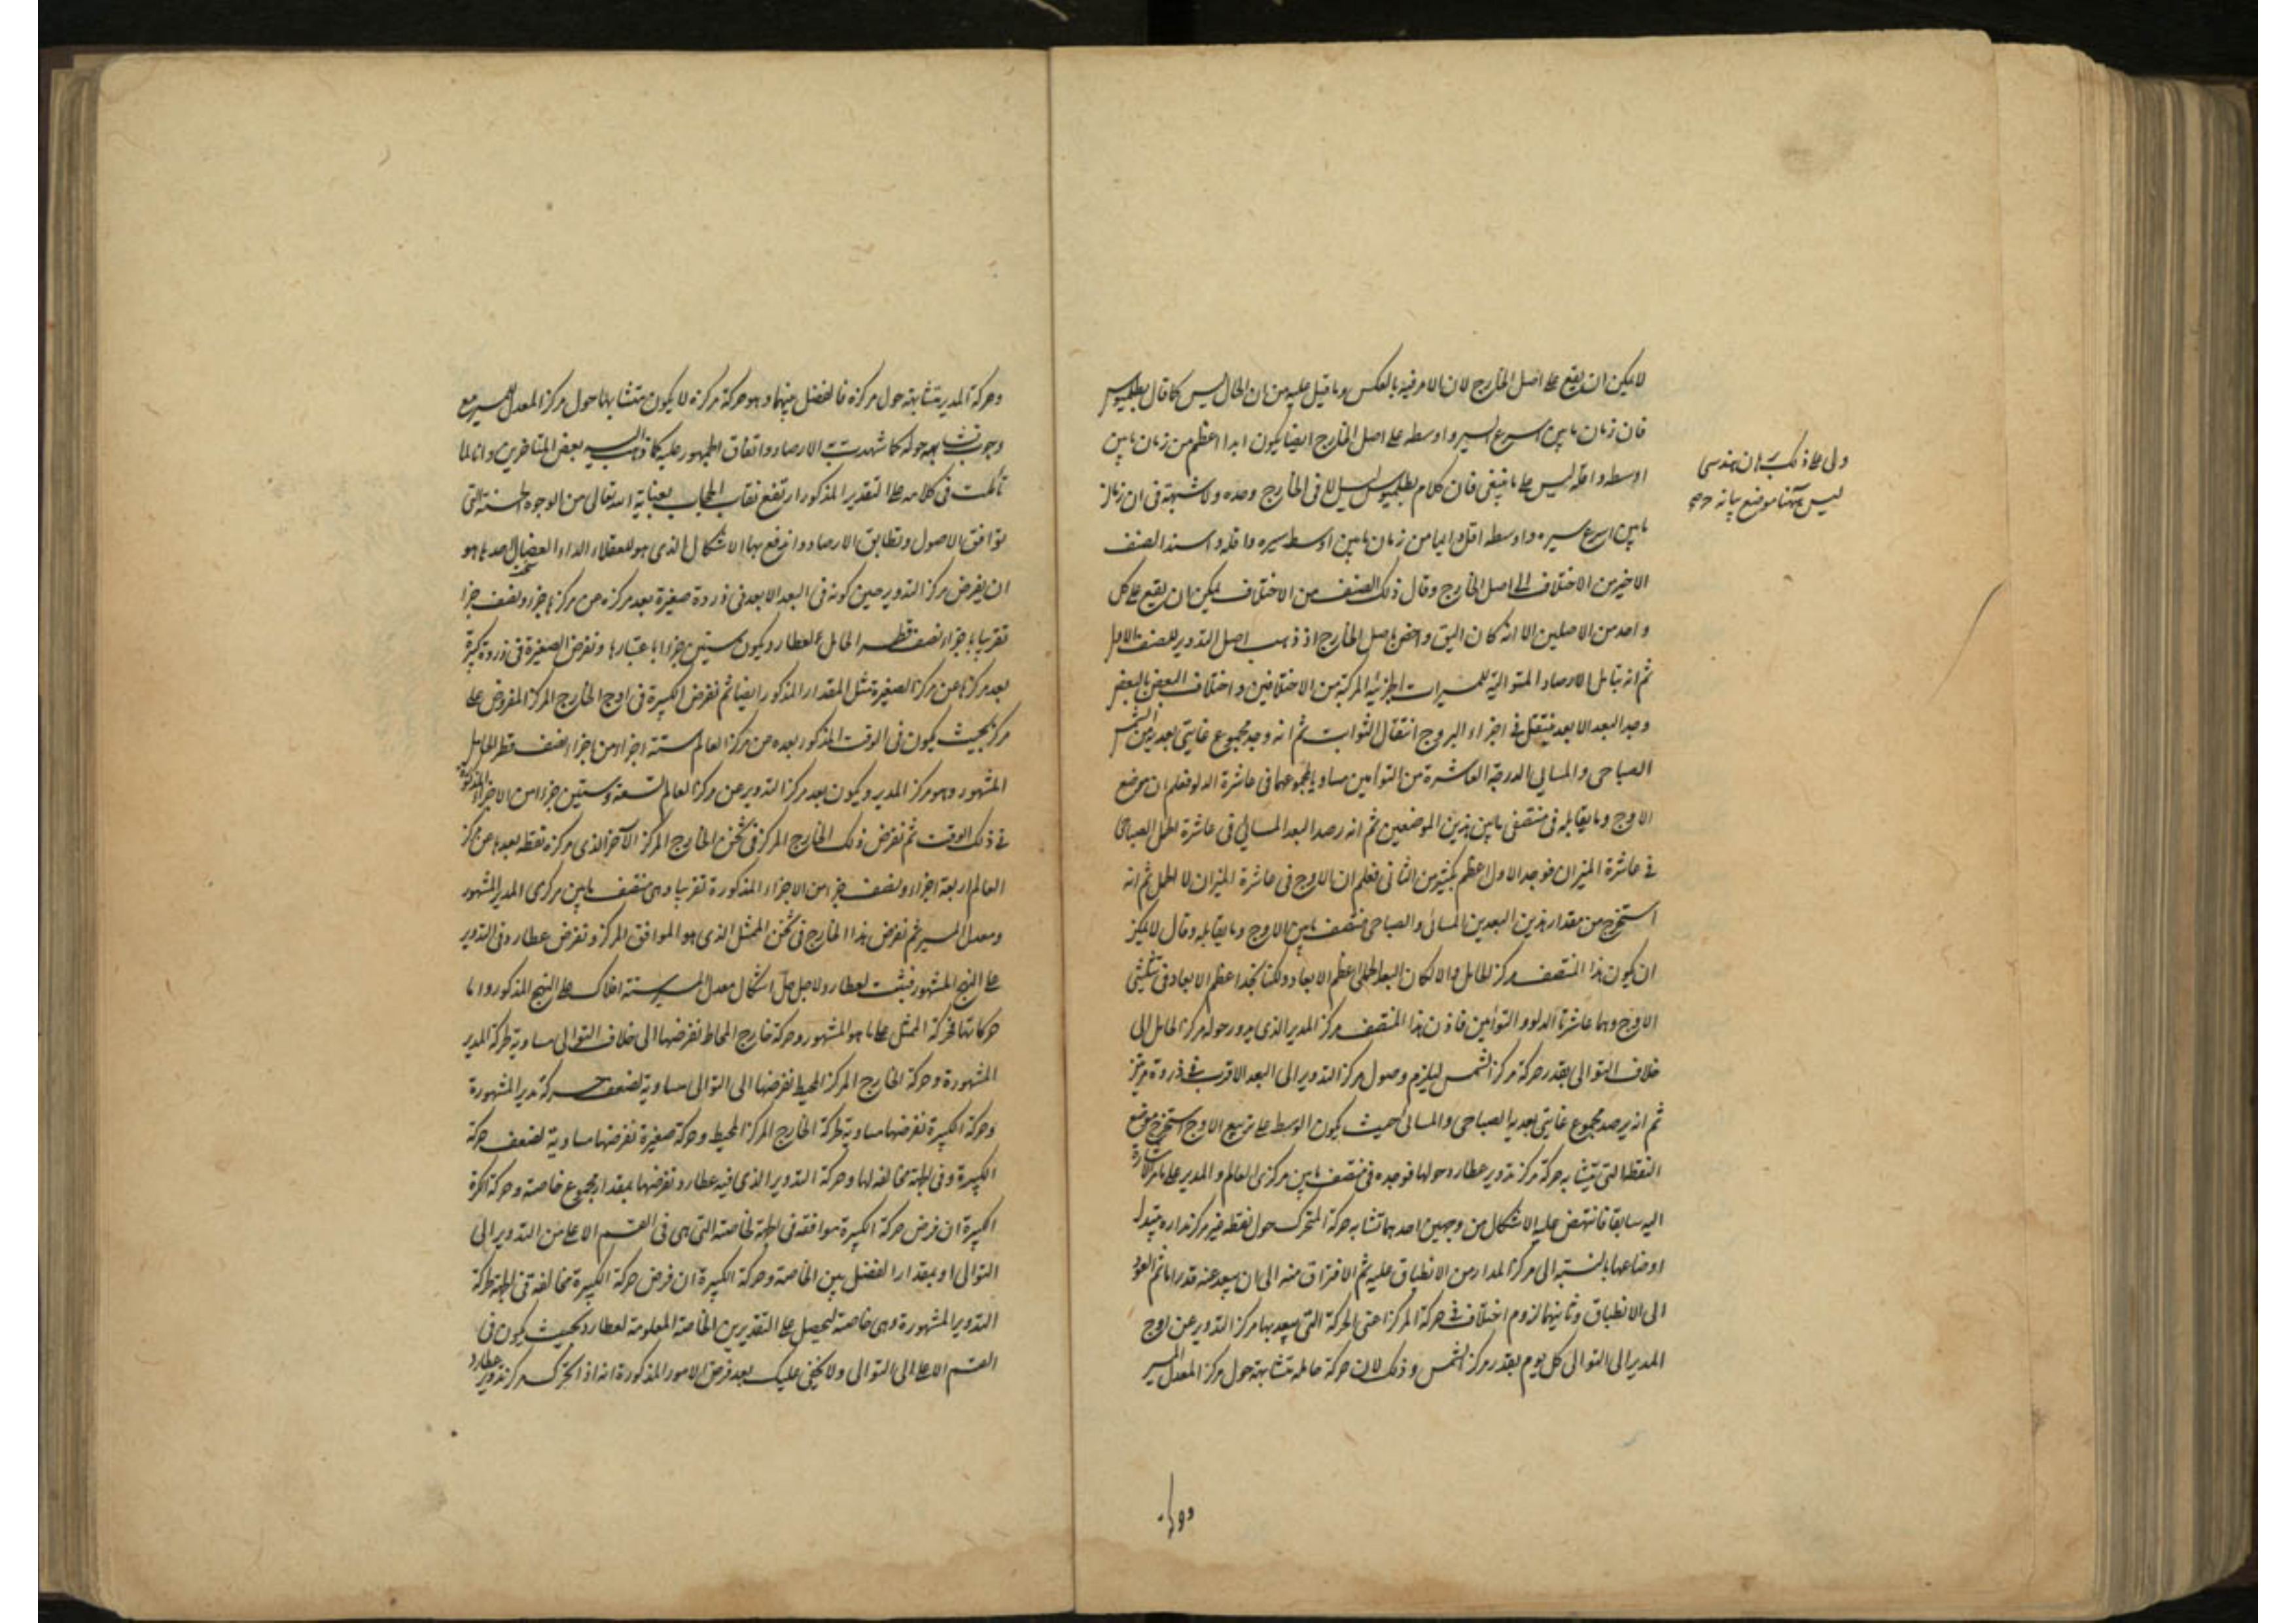 لا يمكن ان يقع على اصل الخارج لان الامر فيه بالعكس وما قيل عليه من ان الحال ليس كما قال بطلميوس
فان زمان ما بين اسرع السير واوسطه على اصل الخارج ايضا يكون ابدا اعظم من زمان ما بين
اوسطه واقله ليس على ما ينبغى فان كلام بطلميوس ليس فى الخارج وحده ولا شبهة فى ان زمان
ما بين اسرع سيره واوسطه اقل دايما من زمان ما بين اوسط سيره واقله واسند الصنف
الاخير من الاختلاف الى اصل الخارج وقال ذلك الصنف من الاختلاف يمكن ان يقع على كل
واحد من الاصلين الا انه كان اليق واخص باصل الخارج اذ ذهب اصل التدوير للصنف الاول
ثم انه تبامل الارصاد المتوالية للمسيرات الجزئية المركبة من الاختلافين واختلاف البعض بالبعض
وجد البعد الابعد ينتقل فى اجزاء البروج انتقال الثوابت ثم انه وجد مجموع غايتى بعديه من الشمس
الصباحى والمسايى الدرجة العاشرة من التوأمين مساويا لمجموعهما فى عاشرة الدلو فعلم ان موضع
الاوج وما يقابله فى منتصفى ما بين هذين الموضعين ثم انه رصد البعد المسائى فى عاشرة الحمل الصباحى
فى عاشرة الميزان فوجد الاول اعظم بكثير من الثانى فعلم ان الاوج فى عاشرة الميزان لا الحمل ثم انه
استخرج من مقدار هذين البعدين المسائى والصباحى منتصف ما بين الاوج وما يقابله وقال لا يمكن
ان يكون هذا المنتصف مركز الحامل والا لكان البعد الحملى اعظم الابعاد ولكنا نجد اعظم الابعاد فى تثليثى
الاوج وهما عاشرتا الدلو والتوأمين فاذن هذا المنتصف مركز المدير الذى يدور حوله مركز الحامل الى
خلاف التوالى بقدر حركة مركز الشمس ليلزم وصول مركز التدوير الى البعد الاقرب فى ذروة مرتين
ثم انه رصد مجموع غايتى بعديه الصباحى والمسائى حيث يكون الوسط على تربيع الاوج استخرج موضع
النقطة التى يتشابه حركة مركز تدوير عطارد حولها فوجده فى منتصف ما بين مركزى العالم والمدير على ما مر الاشارة
اليه سابقا فانتهض عليه الاشكال من وجهين احدهما تشابه حركة المتحرك حول نقطة غير مركز مداره يتبدل
اوضاعها بالنسبة الى مركز المدار من الانطباق عليه ثم الافتراق منه الى ان يبعد عنه قدرا ما ثم العود
الى الانطباق وثانيهما لزوم اختلاف فى حركة المركز اعنى الحركة التى يبعد بها مركز التدوير عن اوج
المدير الى التوالى كل يوم بقدر مركز الشمس وذلك لان حركة حامله متشابهة حول مركز المعدل المسير
ولى على ذلك برهان هندسى
ليس ههنا موضع بيانه
وحركة المدير متشابهة حول مركزه فالفضل بينهما وهو حركة مركزه لا يكون متشابها حول مركز المعدل المسير مع
وجوب تشابهه حوله كما شهدت به الارصاد واتفاق الجمهور عليه كما ذهب اليه بعض المتاخرين وانا لما
تأملت فى كلامه على التقدير المذكور ارتفع نقاب الحجاب بعناية الله تعالى من الوجوه الحسنة التى
توافق الاصول وتطابق الارصاد وارتفع بها الاشكال الذى هو للعقلاء الداء العضال احدها هو
ان يفرض مركز التدوير حين كونه فى البعد الابعد فى ذروة صغيرة بعد مركزه عن مركزها جزء ونصف جزء
تقريبا باجزاء نصف قطر الحامل لعطارد يكون ستين جزءا باعتبارها ونفرض الصغيرة فى ذروة كبيرة
بعد مركزها عن مركز الصغيرة مثل المقدار المذكور ايضا ثم نفرض الكبيرة فى اوج الخارج المركز المفروض على
مركز بحيث يكون فى الوقت المذكور بعده من مركز العالم ستة اجزاء من اجزاء نصف قطر الحامل
المشهور وهو مركز المدير ويكون بعد مركز التدوير عن مركز العالم تسعة وستين جزءا من الاجزاء المذكورة
فى ذلك الوقت ثم نفرض ذلك الخارج المركز فى ثخن الخارج المركز الآخر الذى مركزه نقطة بعدها عن مركز
العالم اربعة اجزاء ونصف جزء من الاجزاء المذكورة تقريبا وهى منتصف ما بين مركزى المدير المشهور
ومعدل المسير ثم نفرض هذا الخارج فى ثخن الممثل الذى هو الموافق المركز ونفرض عطارد فى التدوير
على النهج المشهور فيثبت لعطارد ولاجل حل اشكال معدل المسير ستة افلاك على النهج المذكور واما
حركاتها فحركة الممثل على ما هو المشهور وحركة خارج المحاط نفرضها الى خلاف التوالى مساوية لحركة المدير
المشهورة وحركة الخارج المركز المحيط نفرضها الى التوالى مساوية لضعف حركة مدير المشهورة
وحركة الكبيرة نفرضها مساوية لحركة الخارج المركز المحيط وحركة صغيرة نفرضها مساوية لضعف حركة
الكبيرة وفى الجهة مخالفة لها وحركة التدوير الذى فيه عطارد نفرضها بمقدار مجموع خاصته وحركة الكرة
الكبيرة ان فرض حركة الكبيرة موافقة فى الجهة لخاصته التى هى فى القسم الاعلى من التدوير الى
التوالى او بمقدار الفضل بين الخاصة وحركة الكبيرة ان فرض حركة الكبيرة مخالفة فى الجهة لحركة
التدوير المشهورة وهى خاصته ليحصل على التقديرين الخاصة المعلومة لعطارد بحيث يكون فى
القسم الاعلى الى التوالى ولا يخفى عليك بعد فرض الامور المذكورة انه اذا تحرك مركز تدوير عطارد